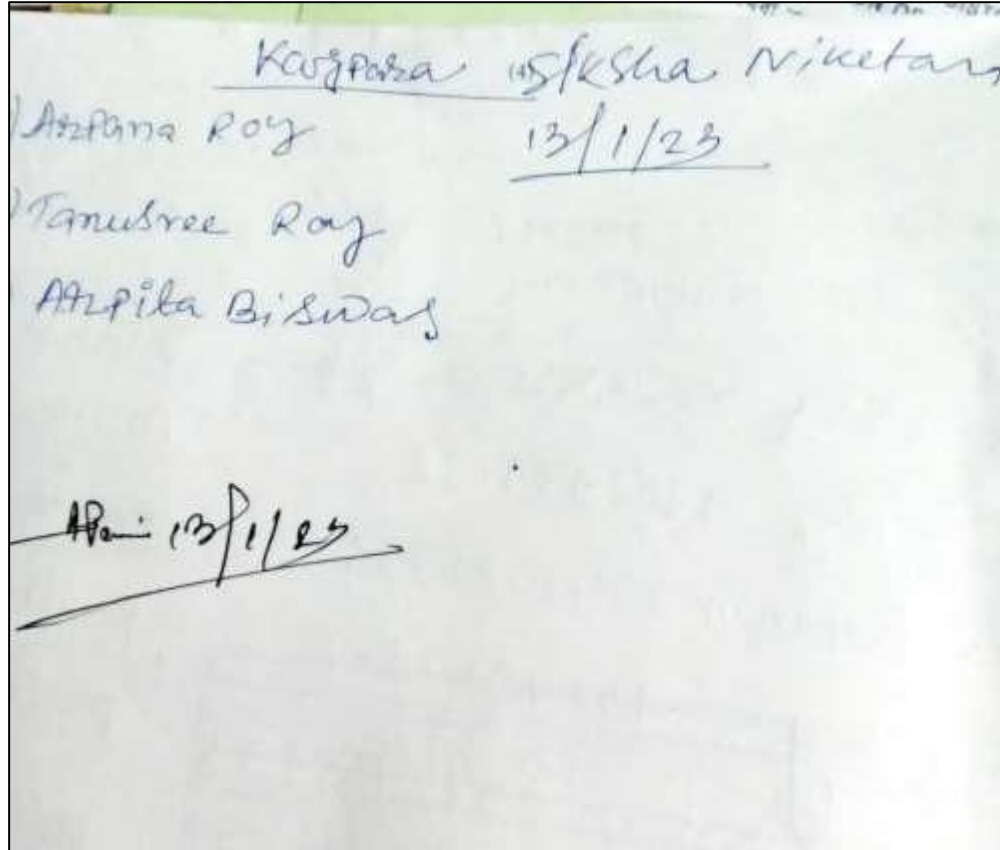 Kaijpara Siksha Niketan
1) Arpana Roy 13/1/23
) Tanusree Roy
Arpita Biswas
13/1/23